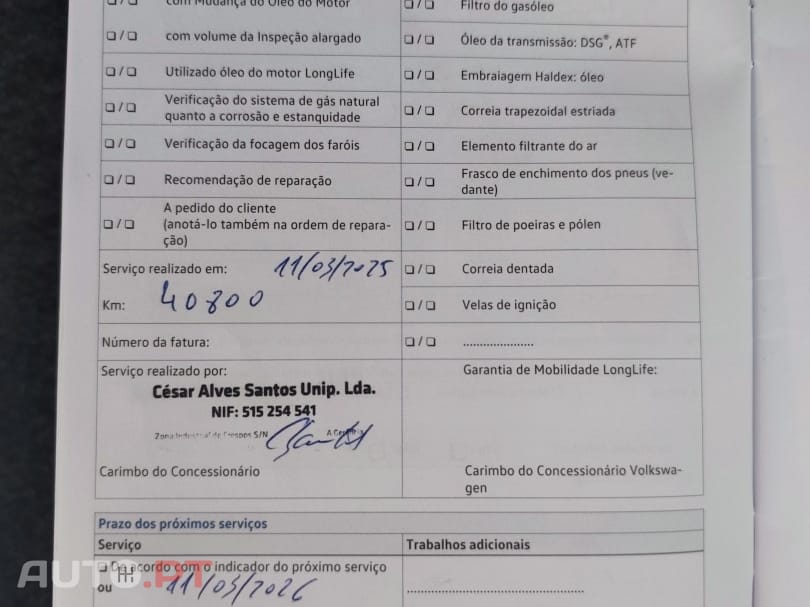 ❏ / ❏ com Mudança do Óleo do Motor
❏ / ❏ com volume da Inspeção alargado
❏ / ❏ Utilizado óleo do motor LongLife
❏ / ❏ Verificação do sistema de gás natural
quanto a corrosão e estanquidade
❏ / ❏ Verificação da focagem dos faróis
❏ / ❏ Recomendação de reparação
A pedido do cliente
❏ / ❏ (anotá-lo também na ordem de repara-
ção)
Serviço realizado em: 11/03/2025
Km: 40800
Número da fatura:
Serviço realizado por:
César Alves Santos Unip. Lda.
NIF: 515 254 541
Zona Industrial de Crespos S/N
Carimbo do Concessionário
❏ / ❏ Filtro do gasóleo
❏ / ❏ Óleo da transmissão: DSG®, ATF
❏ / ❏ Embraiagem Haldex: óleo
❏ / ❏ Correia trapezoidal estriada
❏ / ❏ Elemento filtrante do ar
❏ / ❏ Frasco de enchimento dos pneus (ve-
dante)
❏ / ❏ Filtro de poeiras e pólen
❏ / ❏ Correia dentada
❏ / ❏ Velas de ignição
❏ / ❏ .....................
Garantia de Mobilidade LongLife:
Carimbo do Concessionário Volkswa-
gen
Prazo dos próximos serviços
Serviço
Trabalhos adicionais
❏ De acordo com o indicador do próximo serviço
ou 11/03/2026
AUTO.PT